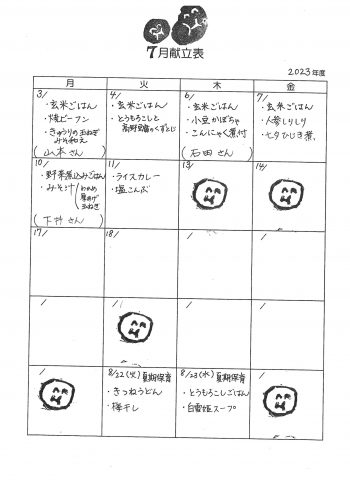 7月献立表
2023年度
月 火 木 金
3/
・玄米ごはん
・焼ビーフン
・きゅうりの玉ねぎ
みそ和え
(山本さん)
4/
・玄米ごはん
・とうもろこしと
高野豆腐のくずとじ
6/
・玄米ごはん
・小豆かぼちゃ
・こんにゃく煮付
(石田さん)
7/
・玄米ごはん
・人参しりしり
・七夕ひじき煮
10/
・野菜煮込みごはん
・みそ汁(わかめ
厚揚げ
玉ねぎ
(下村さん)
11/
・ライスカレー
・塩こんぶ
13/
14/
17/
18/
/
/
/
/
/
/
/
8/22(火)夏期保育
・きつねうどん
・梅干し
8/23(水)夏期保育
・とうもろこしごはん
・白雪姫スープ
/